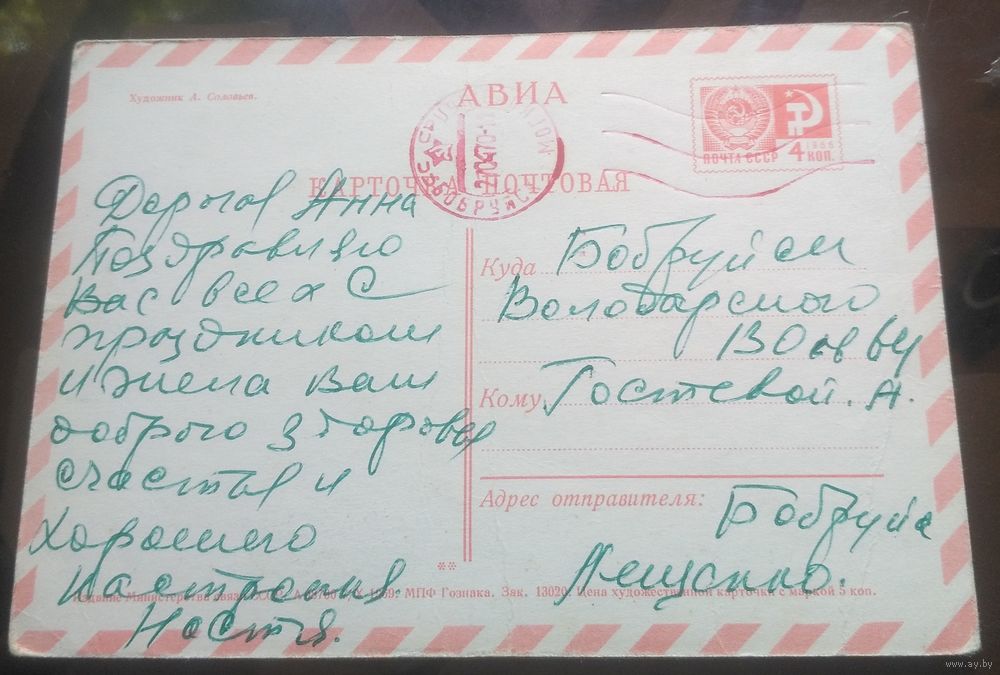 Художник А. Соловьев.
АВИА
ПОЧТА СССР 4 КОП.
1966
КАРТОЧКА ПОЧТОВАЯ
БОБРУЙСК
Дорогая Анна
Поздравляю
Вас всех С
праздником
и жела Вам
доброго здоровья
счастья и
хорошего
настроения.
Настя.
Куда Бобруйск
Володарского
130 кв 64
Кому Гостевой. А.
Адрес отправителя: Бобруйск
Лещенко.
**
Издание Министерства связи СССР. 1969. МПФ Гознака. Зак. 13020. Цена художественной карточки с маркой 5 коп.
www.ay.by